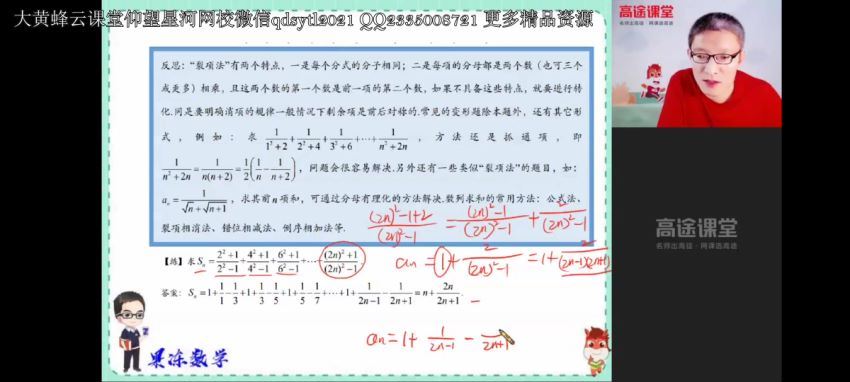 大黄蜂云课堂仰望星河网校微信qdsytl2021 QQ2335008721 更多精品资源
高途课堂
名师出高徒·网课选高途
反思：“裂项法”有两个特点，一是每个分式的分子相同；二是每项的分母都是两个数（也可三个
或更多）相乘，且这两个数的第一个数是前一项的第二个数，如果不具备这些特点，就要进行转
化.同是要明确消项的规律一般情况下剩余项是前后对称的.常见的变形题除本题外，还有其它形
式，例如：求 1/(1²+2)+1/(2²+4)+1/(3²+6)+⋯+1/(n²+2n)，方法还是抓通项，即
1/(n²+2n)=1/(n(n+2))=1/2(1/n-1/(n+2))，问题会很容易解决.另外还有一些类似“裂项法”的题目，如：
aₙ=1/(√n+√(n+1))，求其前n项和，可通过分母有理化的方法解决.数列求和的常用方法：公式法、
裂项相消法、错位相减法、倒序相加法等.
((2n)²-1+2)/((2n)²-1)=((2n)²-1)/((2n)²-1)+2/((2n)²-1)
【练】求Sₙ=(2²+1)/(2²-1)+(4²+1)/(4²-1)+(6²+1)/(6²-1)+⋯+((2n)²+1)/((2n)²-1)
an=1+2/((2n)²-1)=1+2/((2n-1)(2n+1))
答案：Sₙ=1+1/1-1/3+1+1/3-1/5+1+1/5-1/7+⋯+1+1/(2n-1)-1/(2n+1)=n+2n/(2n+1).
an=1+1/(2n-1)-/(2n+1)
果冻数学
高途课堂
名师出高徒·网课选高途